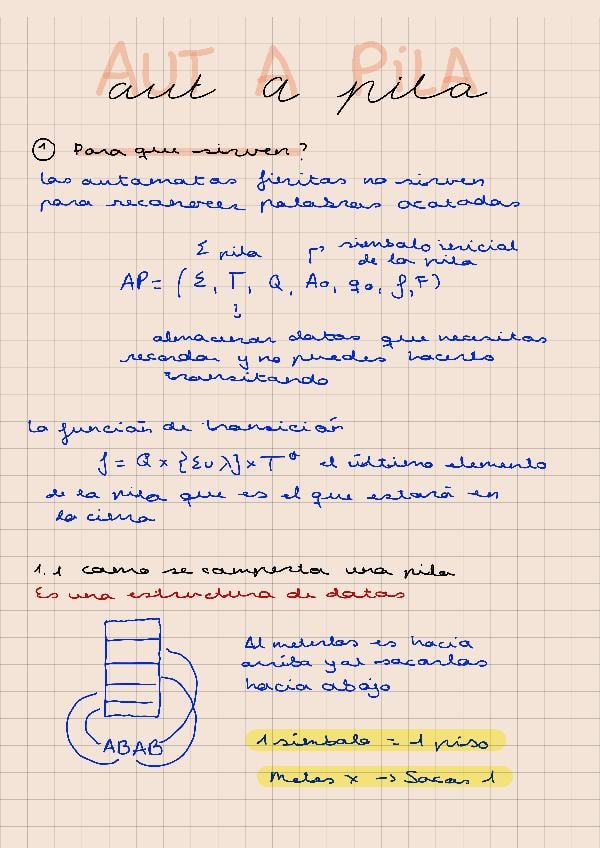 AUT A PILA
aut a pila
① Para que sirven?
Los automatas finitos no sirven
para reconocer palabras acotadas
Σ pila ↱ simbolo inicial
de la pila
AP = (Σ, T, Q, A₀, q₀, f, F)
↓
almacenar datos que necesitas
recordar y no puedes hacerlo
transitando
La función de transición
f = Q × {Σ ∪ λ} × T* el último elemento
de la pila que es el que estará en
la cima
1.1 como se comporta una pila
Es una estructura de datos
Al meterlos es hacia
arriba y al sacarlos
hacia abajo
ABAB
1 simbolo = 1 piso
Metes x → Sacas 1